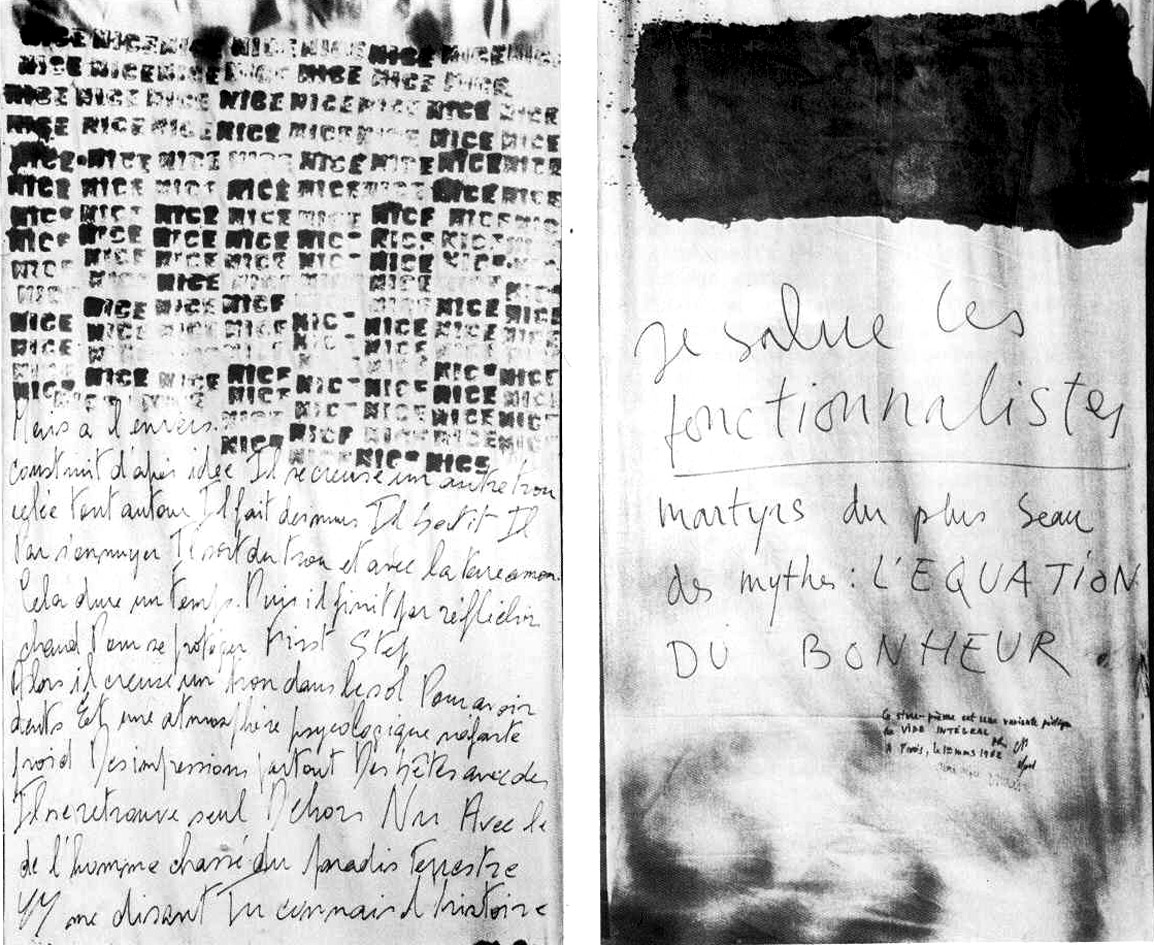 NICE NICE NICE NICE NICE NICE NICE NICE
NICE NICE NICE NICE NICE NICE NICE
NICE NICE NICE NICE NICE NICE NICE NICE
NICE NICE NICE NICE NICE NICE NICE NICE
NICE NICE NICE NICE NICE NICE NICE NICE
NICE NICE NICE NICE NICE NICE NICE NICE
NICE NICE NICE NICE NICE NICE NICE NICE
NICE NICE NICE NICE NICE NICE NICE
NICE NICE NICE NICE NICE NICE NICE
NICE NICE NICE NICE NICE
NICE NICE NICE NICE NICE NICE
NICE NICE NICE NICE NICE NICE NICE NICE
NICE NICE NICE NICE NICE
NICE NICE NICE NICE NICE NICE NICE NICE
NICE NICE NICE NICE NICE NICE
Mais à l'envers. NICE NICE NICE NICE NICE
NICE NICE NICE NICE
construit d'après idée Il recreuse un autre trou
gelée tout autour Il fait des murs Il bâtit Il
Par s'ennuyer Il sort du trou et avec la terre amon
Cela dure un temps. Puis il finit par réfléchir
chaud Pour se protéger First Step
Alors il creuse un trou dans le sol Pour avoir
dents Et une atmosphère psycologique néfaste
froid Des impressions partout Des bêtes avec des
Il se retrouve seul Dehors Nu Avec le
de l'homme chassé du paradis terrestre
YY me disant Tu connais l'histoire
Je salue les
fonctionnalistes
martyrs du plus beau
des mythes : L'EQUATION
DU BONHEUR
Ce store-poème est une variante
du VIDE INTÉGRAL
à Paris, le 10 mars 1962